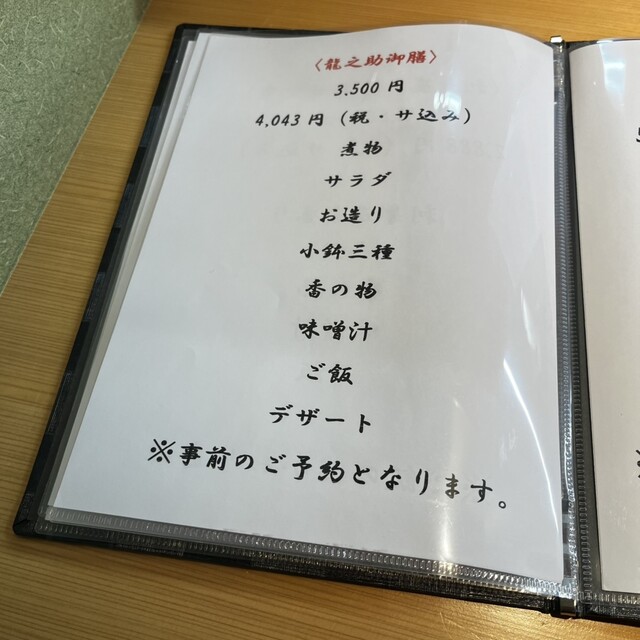 〈龍之助御膳〉
3.500 円
4,043 円（税・サ込み）
煮物
サラダ
お造り
小鉢三種
香の物
味噌汁
ご飯
デザート
※事前のご予約となります。